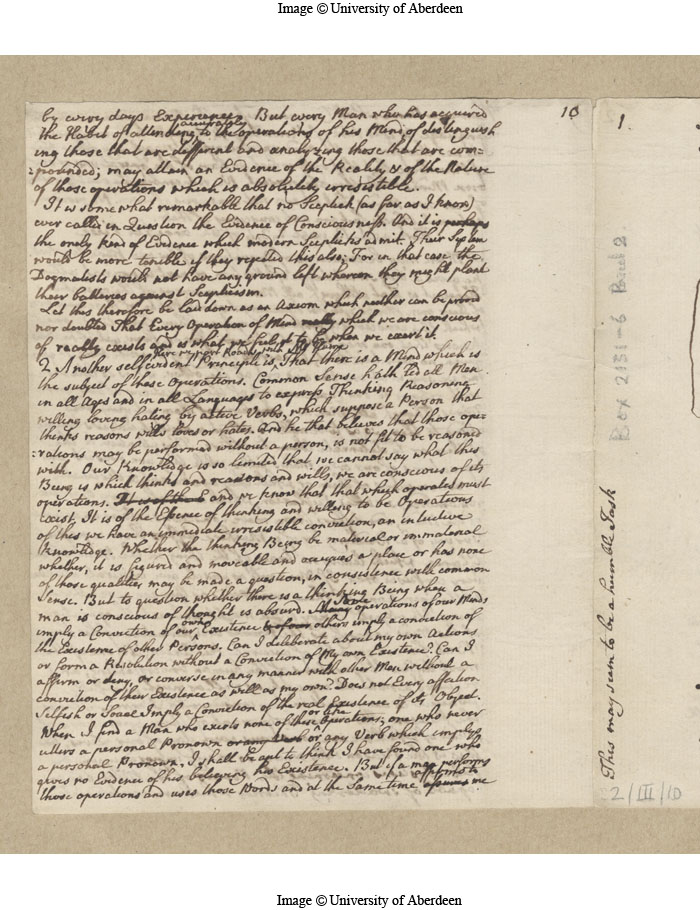 Image © University of Aberdeen
10
by every days Experience. But every Man who has acquired
the Habit of attending accurately to the operations of his Mind, of distinguish
ing those that are different and analyzing those that are com=
=pounded; may attain an Evidence of the Reality & of the Nature
of those operations which is absolutely irresistible.
It is somewhat remarkable that no Sceptick (as far as I know)
ever called in Question the Evidence of Consciousness. And it is perhaps
the onely kind of Evidence which modern Scepticks admit. Their System
would be more tenible if they rejected this also: For in that case the
Dogmatists would not have any ground left whereon they might plant
their batteries against Scepticism.
Let this therefore be laid down as an Axiom which neither can be proved
nor doubted That Every Operation of Mind really which we are conscious
of really exists and is what we feel it to be when we exert it
2 Another selfevident Principle is, That there is a Mind which is
the subject of those Operations. Common Sense hath led all Men
in all Ages and in all Languages to express Thinking Reasoning
willing loving hating by active Verbs, which suppose a Person that
thinks reasons wills loves or hates. And he that believes that those ope=
=rations may be performed without a person, is not fit to be reasoned
with. Our Knowledge is so limited that we cannot say what this
Being is which thinks and reasons and wills, we are conscious of its
operations. It is of the E and we know that that which operates must
exist. It is of the Essence of thinking and willing to be Operations
of this we have an immediate irresistible conviction, an intuitive
Knowledge. Whether the thinking Being be material or immaterial
whether, it is figured and moveable and occupies a place or has none
of those qualities may be made a question, in consistence with common
Sense. But to question whether there is a thinking Being when a
man is conscious of thought is absurd. Many Some operations of our Minds
imply a Conviction of our own Existence others imply a conviction of
the Existence of other Persons. Can I deliberate about my own Actions
or form a Resolution without a Conviction of my own Existence? Can I
affirm or deny, or converse in any manner with other Men without a
conviction of their Existence as well as my own? Does not Every affection
Selfish or Social Imply a Conviction of the real Existence of its Object.
When I find a Man who exerts none of these or like Operations; one who never
utters a personal Pronoun or any Verb or any Verb which implys
a personal Pronoun, I shall be apt to think I have found one who
gives no Evidence of his believing his Existence. But if a man performs
those operations and uses those Words and at the same time affirms to me
1.
Box 2131-6
This may seem to be a humble Task
2/III/10
Image © University of Aberdeen